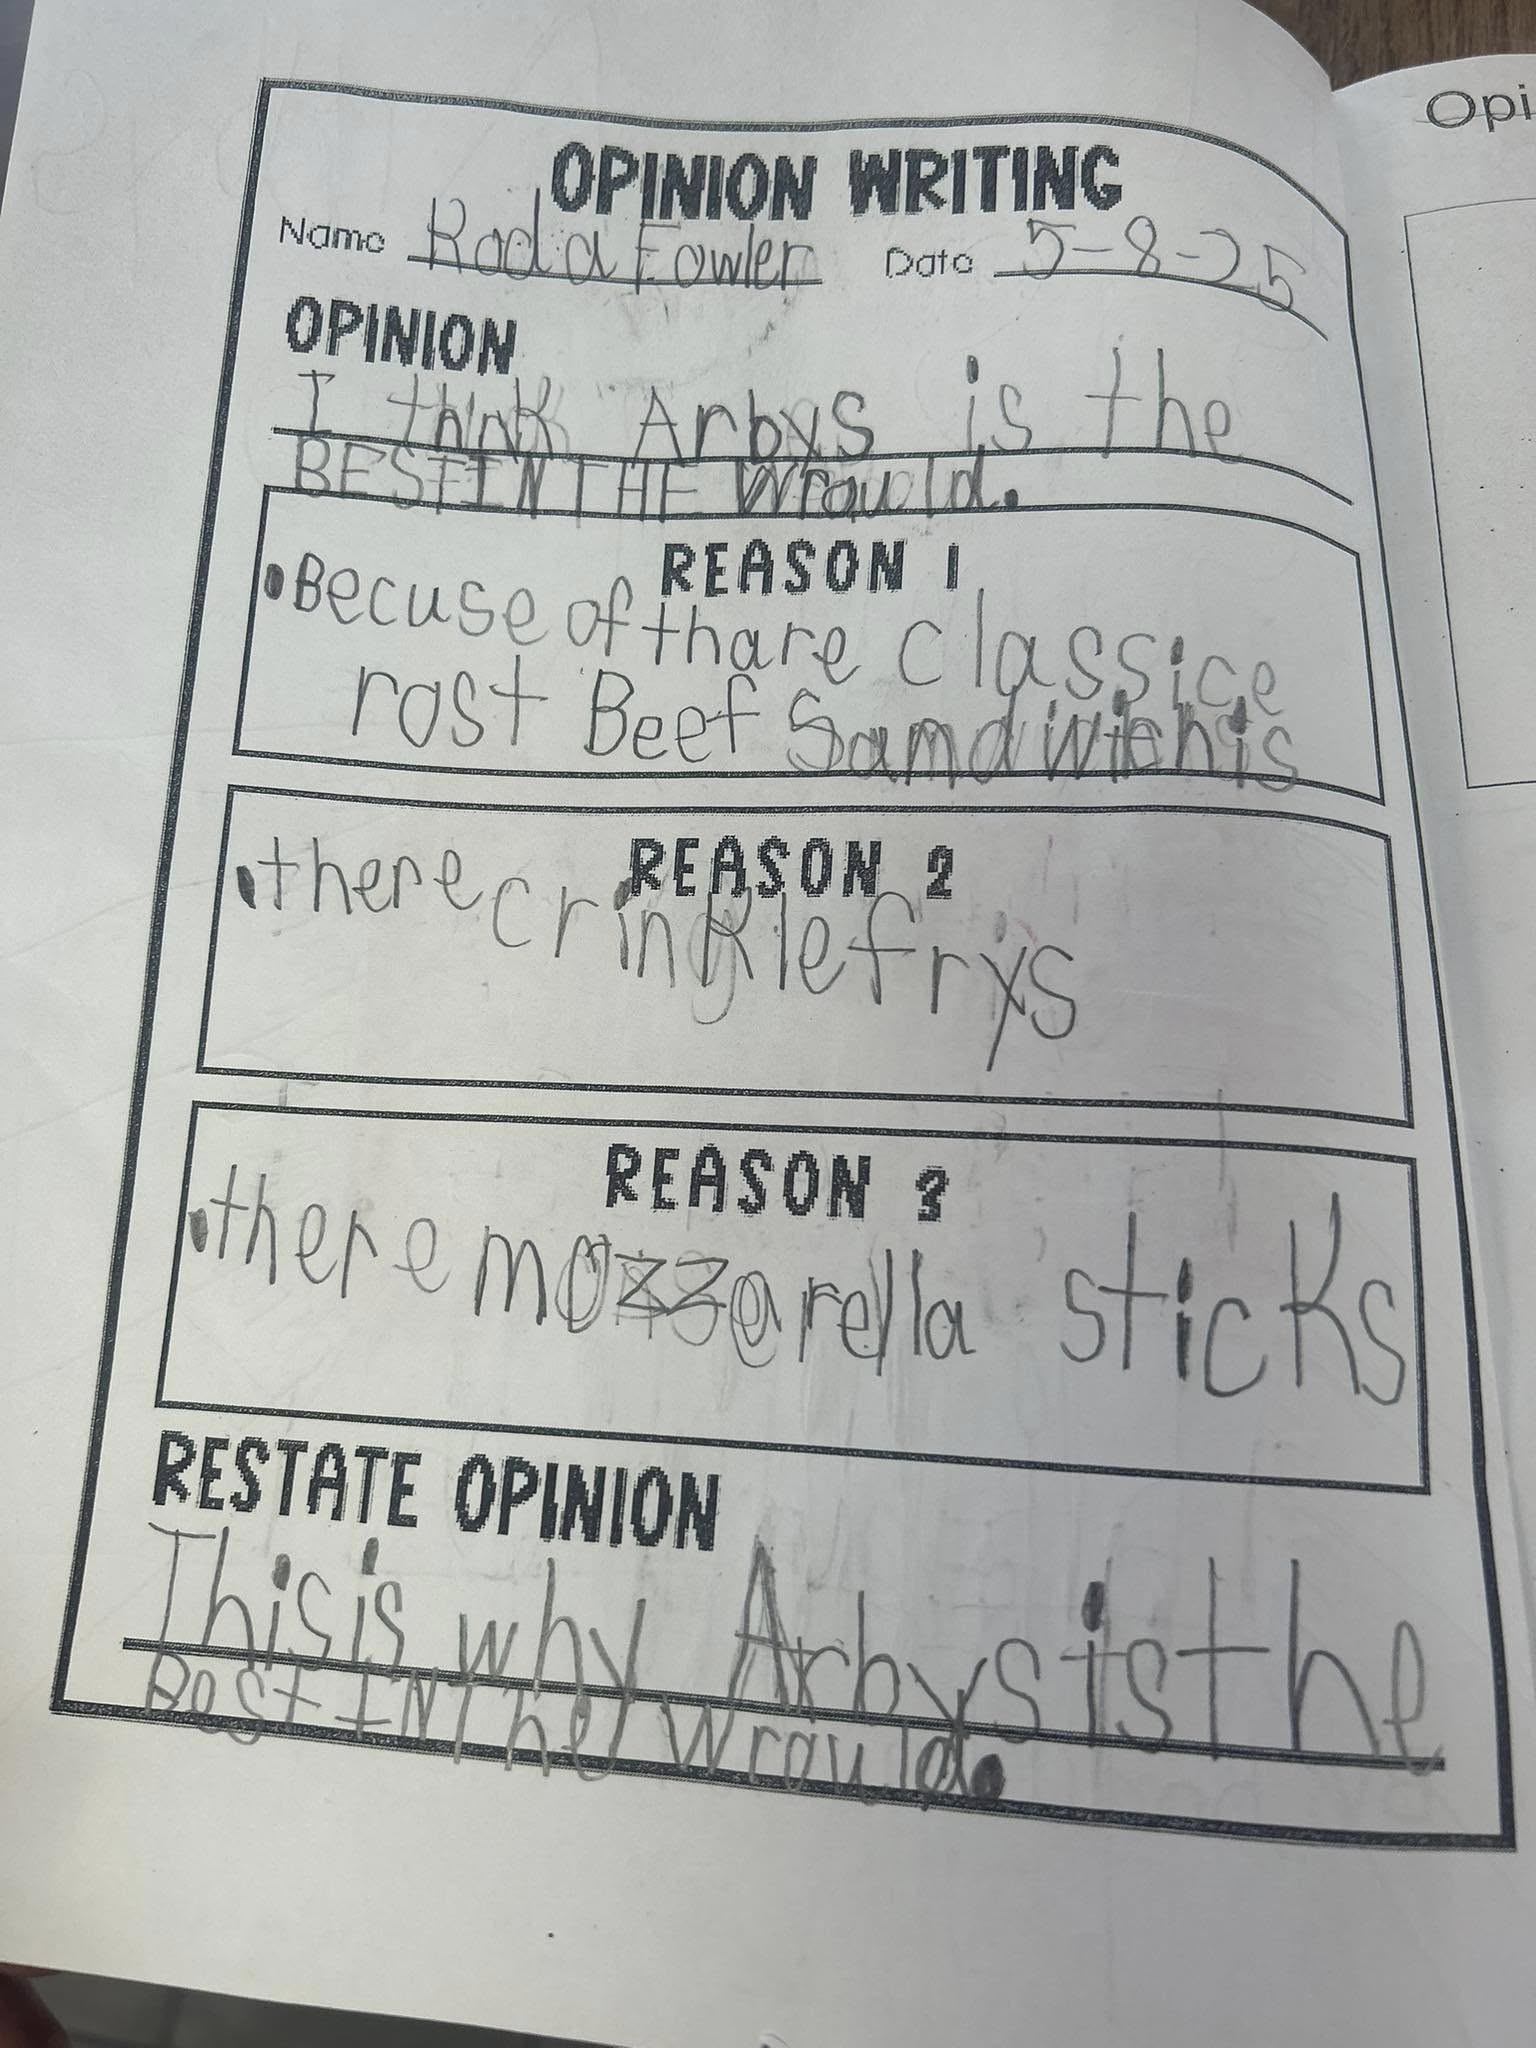 Opi
OPINION WRITING
Name Roda Fowler Date 5-8-25
OPINION
I think Arbys is the
BEST IN THE Wrauld.
REASON 1
•Becuse of thare classice
rost Beef Samdwichis
REASON 2
•there crinkle frys
REASON 3
•there mozzerella sticks
RESTATE OPINION
This is why Arbys is the
Best IN The Wrauld.